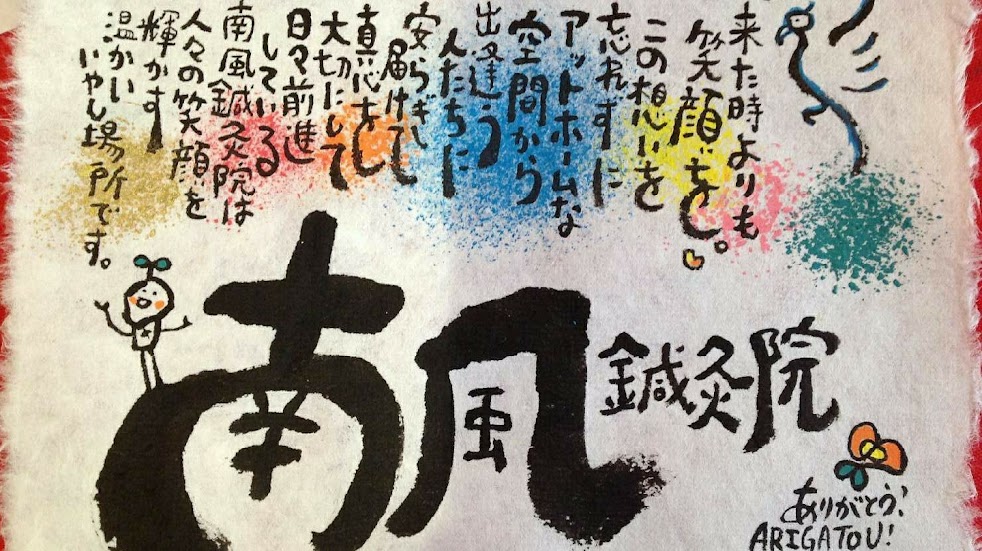 来た時よりも
笑顔を。
この想いを
忘れずに
アットホームな
空間から
出逢う
人たちに
安らぎ
届けて
真心を
大切にして
日々前進
している
南風鍼灸院は
人々の笑顔を
輝かす
温かい
いやし場所です。
南風鍼灸院
ありがとう!
ARIGATOU!